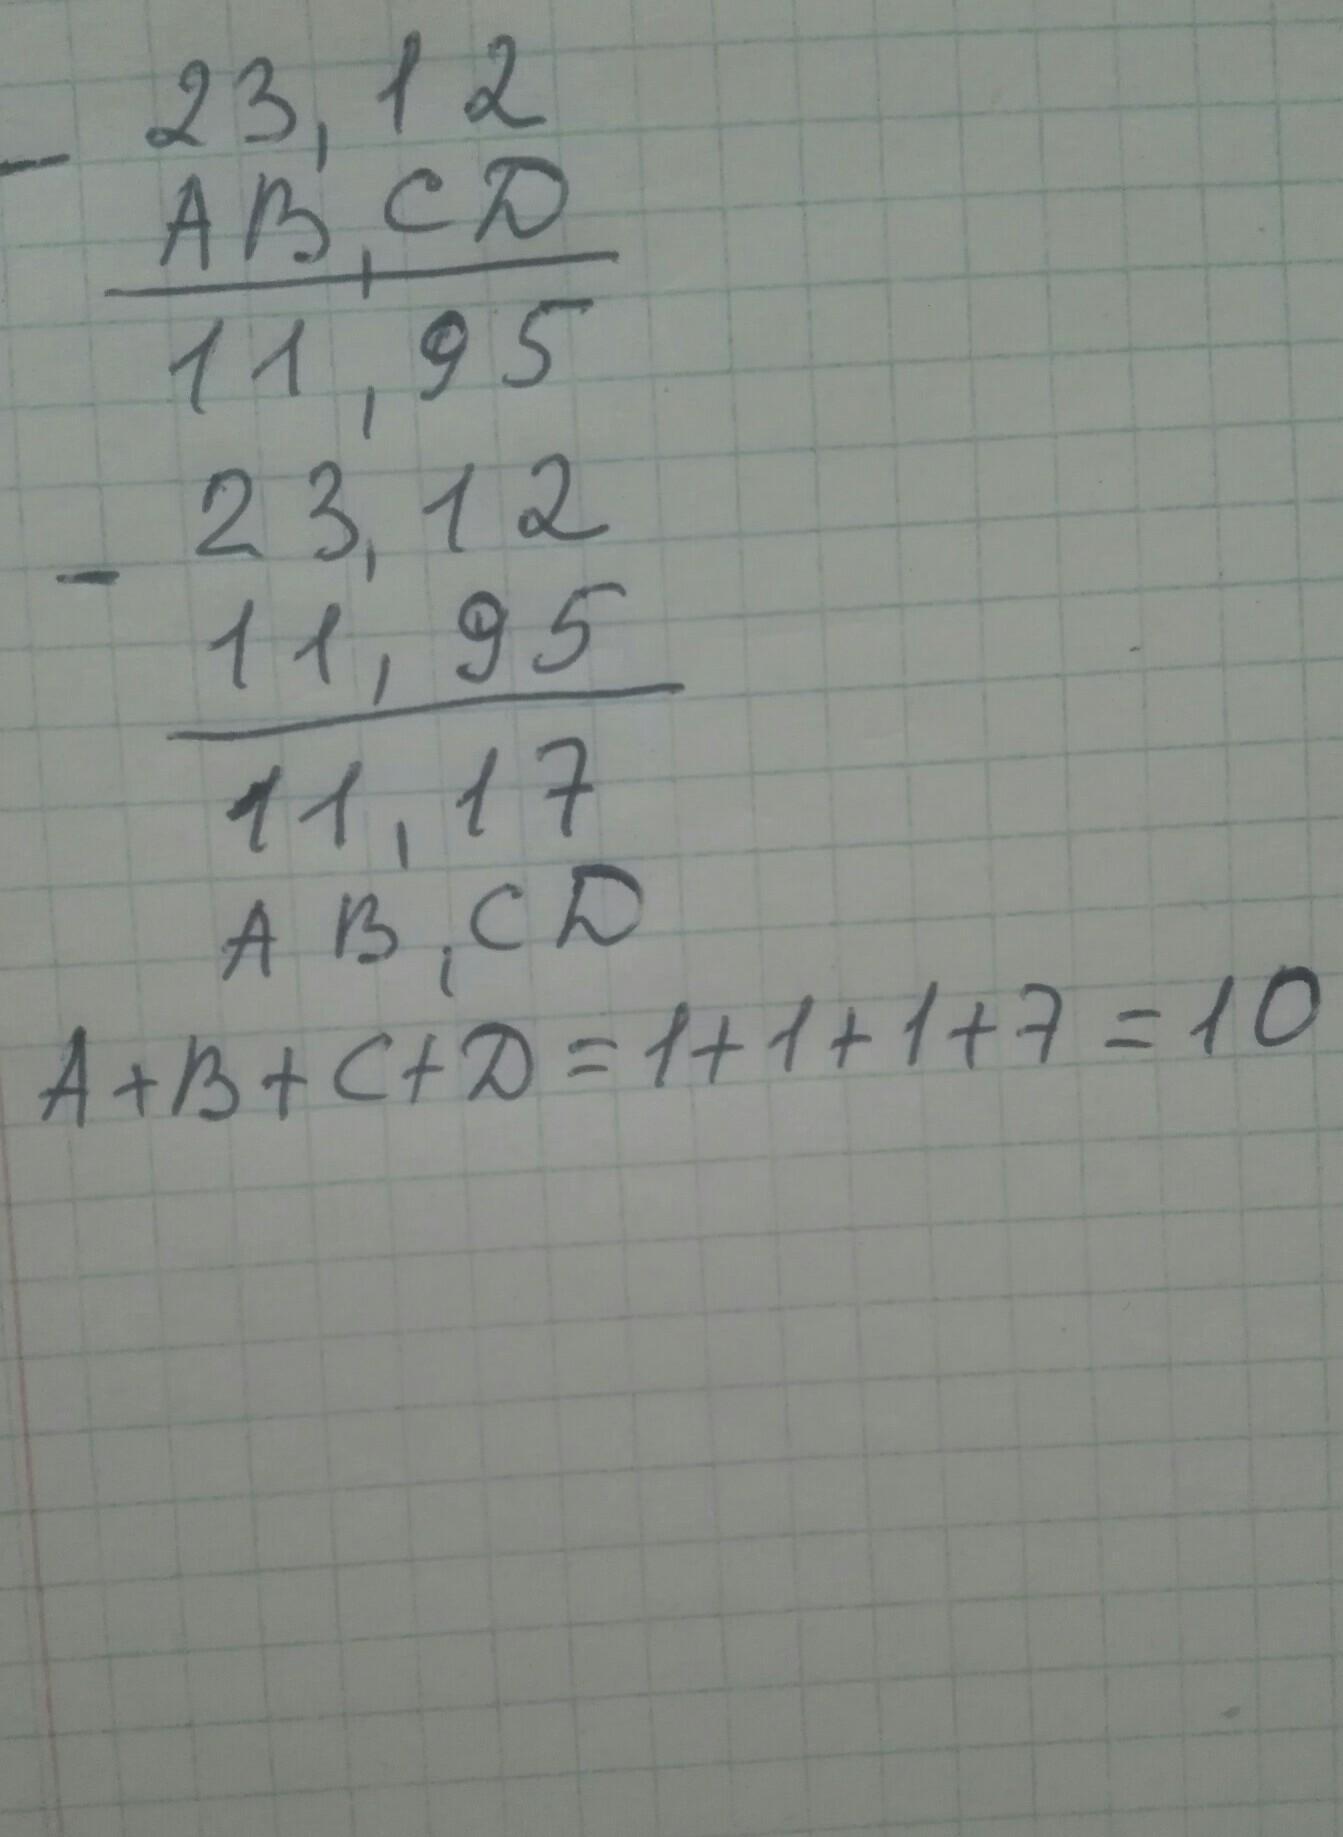 23,12
-
AB,CD
11,95
23,12
-
11,95
11,17
AB,CD
A+B+C+D=1+1+1+7=10